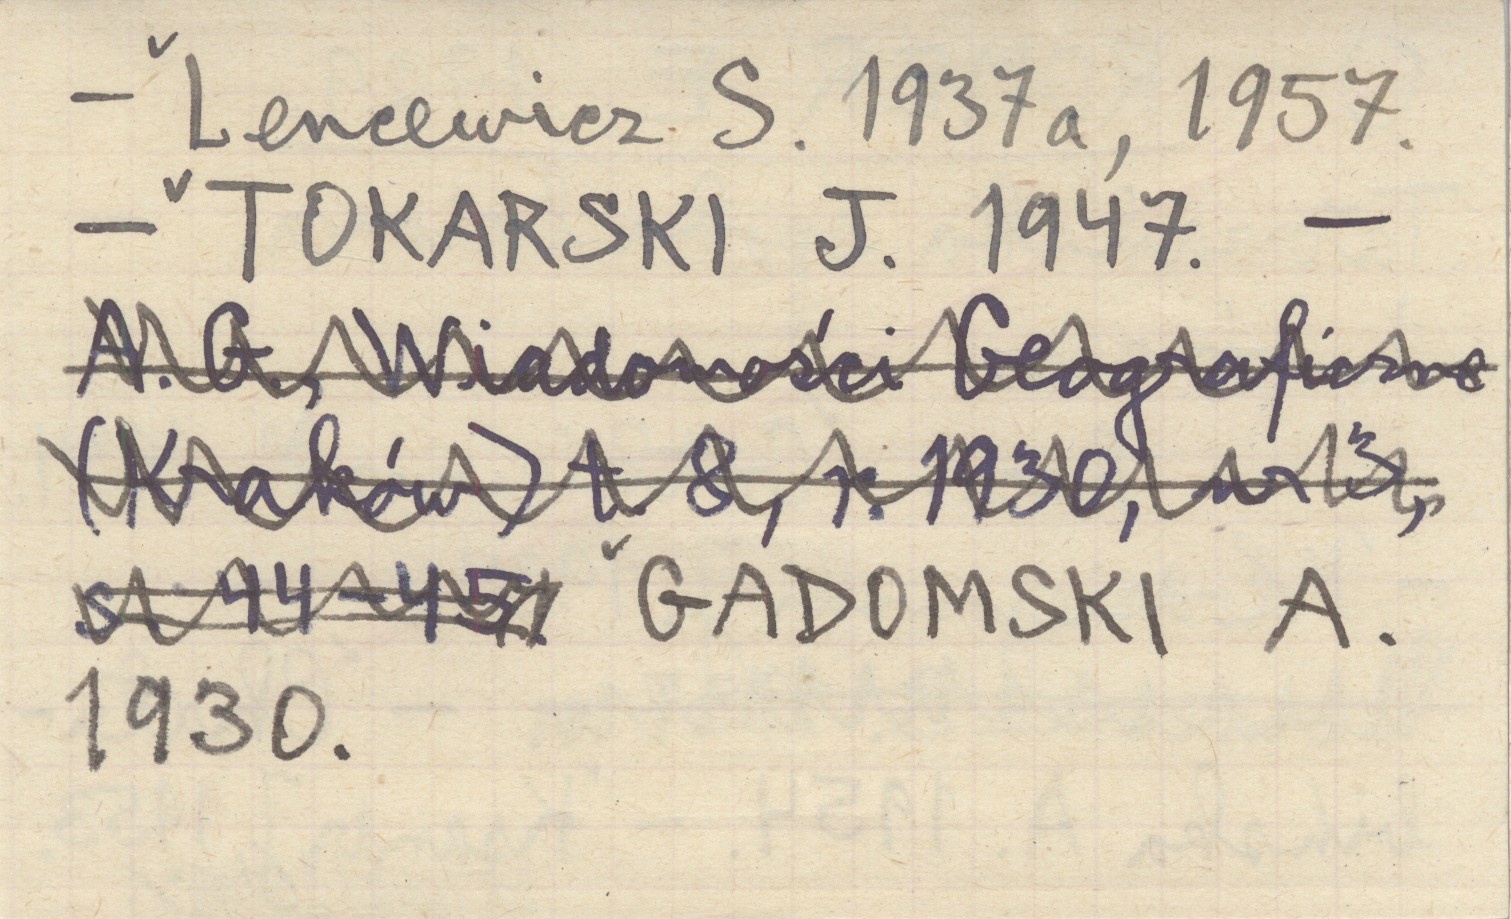 – ˇLencewicz S. 1937a, 1957.
– ˇTOKARSKI J. 1947. –
A. G., Wiadomości Geograficzne
(Kraków) t. 8, r. 1930, nr 3,
s. 44–45. ˇGADOMSKI A.
1930.